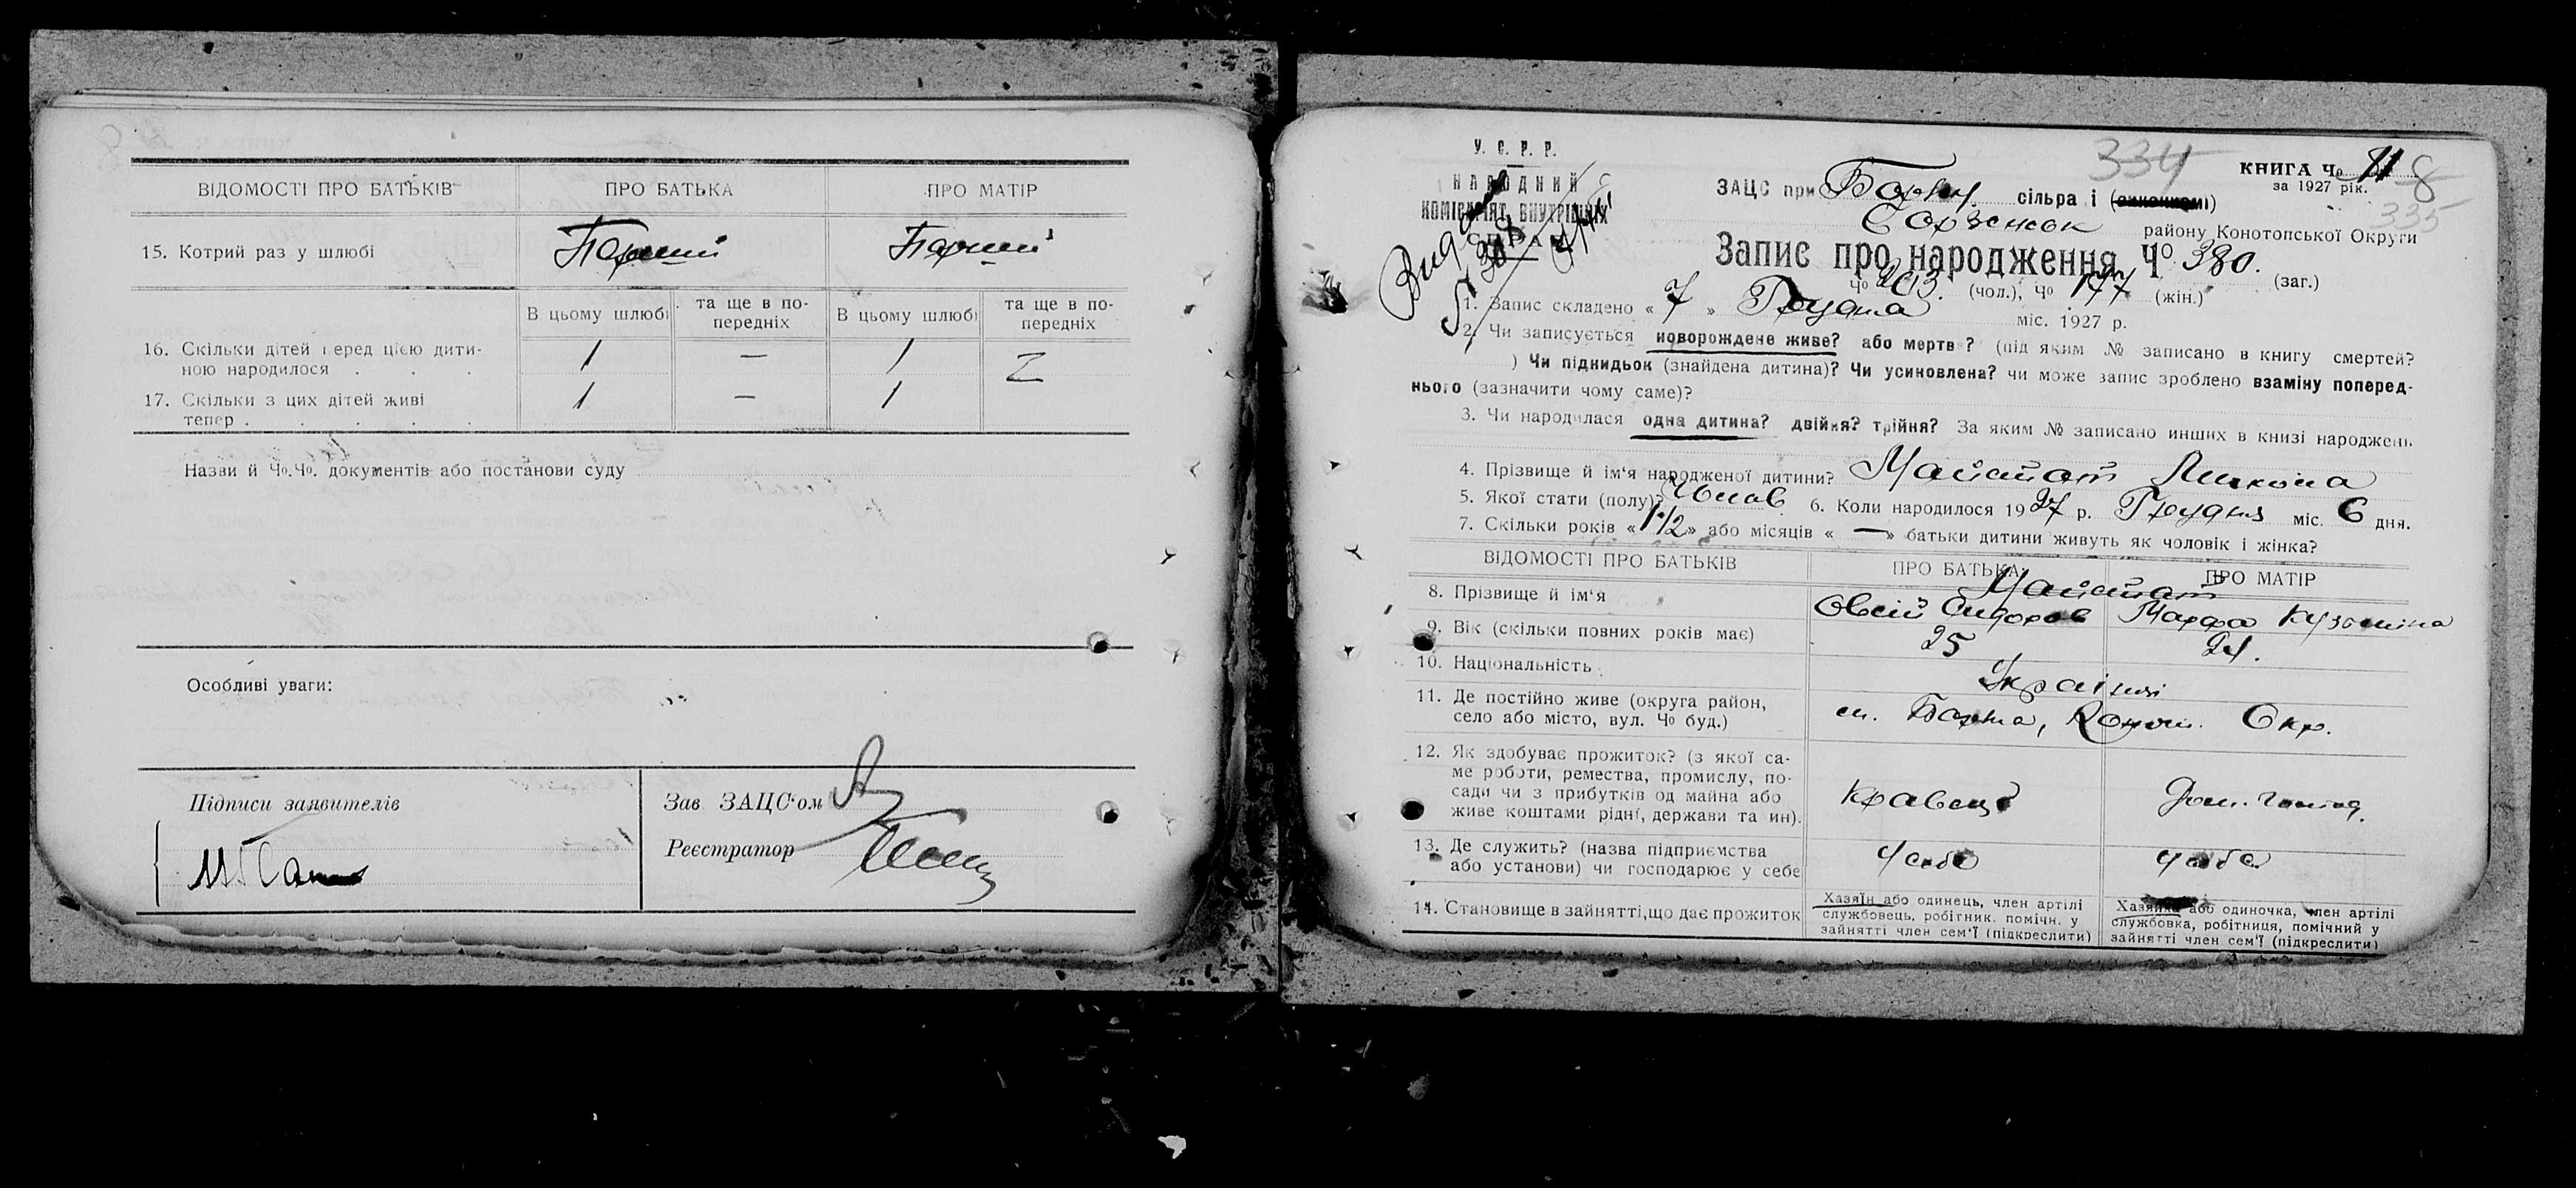 ВІДОМОСТІ ПРО БАТЬКІВ ПРО БАТЬКА ПРО МАТІР
15. Котрий раз у шлюбі Перший Перший
В цьому шлюбі та ще в по-передніх В цьому шлюбі та ще в по-передніх
16. Скільки дітей перед цією дити-
ною народилося . . . 1 — 1
17. Скільки з цих дітей живі
тепер . . . . . 1 — 1
Назви й Ч°.Ч°. документів або постанови суду
Особливі уваги:
Підписи заявителів
Зав ЗАЦС'ом
Реєстратор
У. С. Р. Р.
НАРОДНИЙ
КОМІСАРІЯТ ВНУТРІШНІХ
СПРАВ
334
КНИГА Ч° 11 8
за 1927 рік.
335
ЗАЦС при Борзн. сільра і
району Конотопської Округи
Запис про народження Ч° 380. (заг.)
Ч° 203. (чол.), Ч° 177 (жін.)
1. Запис складено « 7 » Грудня міс. 1927 р.
2. Чи записується новорождене живе? або мертве? (під яким № записано в книгу смертей?
) Чи підкидьок (знайдена дитина)? Чи усиновлена? чи може запис зроблено взаміну поперед-
нього (зазначити чому саме)?
3. Чи народилася одна дитина? двійня? трійня? За яким № записано инших в книзі народжень
4. Прізвище й ім'я народженої дитини? Майстат Микола
5. Якої стати (полу)? Чолов 6. Коли народилося 1927 р. Грудня міс. 6 дня.
7. Скільки років «1½» або місяців « — » батьки дитини живуть як чоловік і жінка?
ВІДОМОСТІ ПРО БАТЬКІВ ПРО БАТЬКА ПРО МАТІР
Майстат
8. Прізвище й ім'я Овсій Сидоров Марфа Кузьмівна
9. Вік (скільки повних років має) 25
10. Національність Українці
11. Де постійно живе (округа район,
село або місто, вул. Ч° буд.) Конот. Окр.
12. Як здобуває прожиток? (з якої са-
ме роботи, ремества, промислу, по-
сади чи з прибутків од майна або
живе коштами рідні, держави та ин). Кравець Дом. господ.
13. Де служить? (назва підприємства
або установи) чи господарює у себе У себе У себе
14. Становище в зайнятті,що дає прожиток
Хазяїн або одинець, член артілі
службовець, робітник, помічн. у
зайнятті член сем'ї (підкреслити)
Хазяйка або одиночка, член артілі
службовка, робітниця, помічний у
зайнятті член сем'ї (підкреслити)